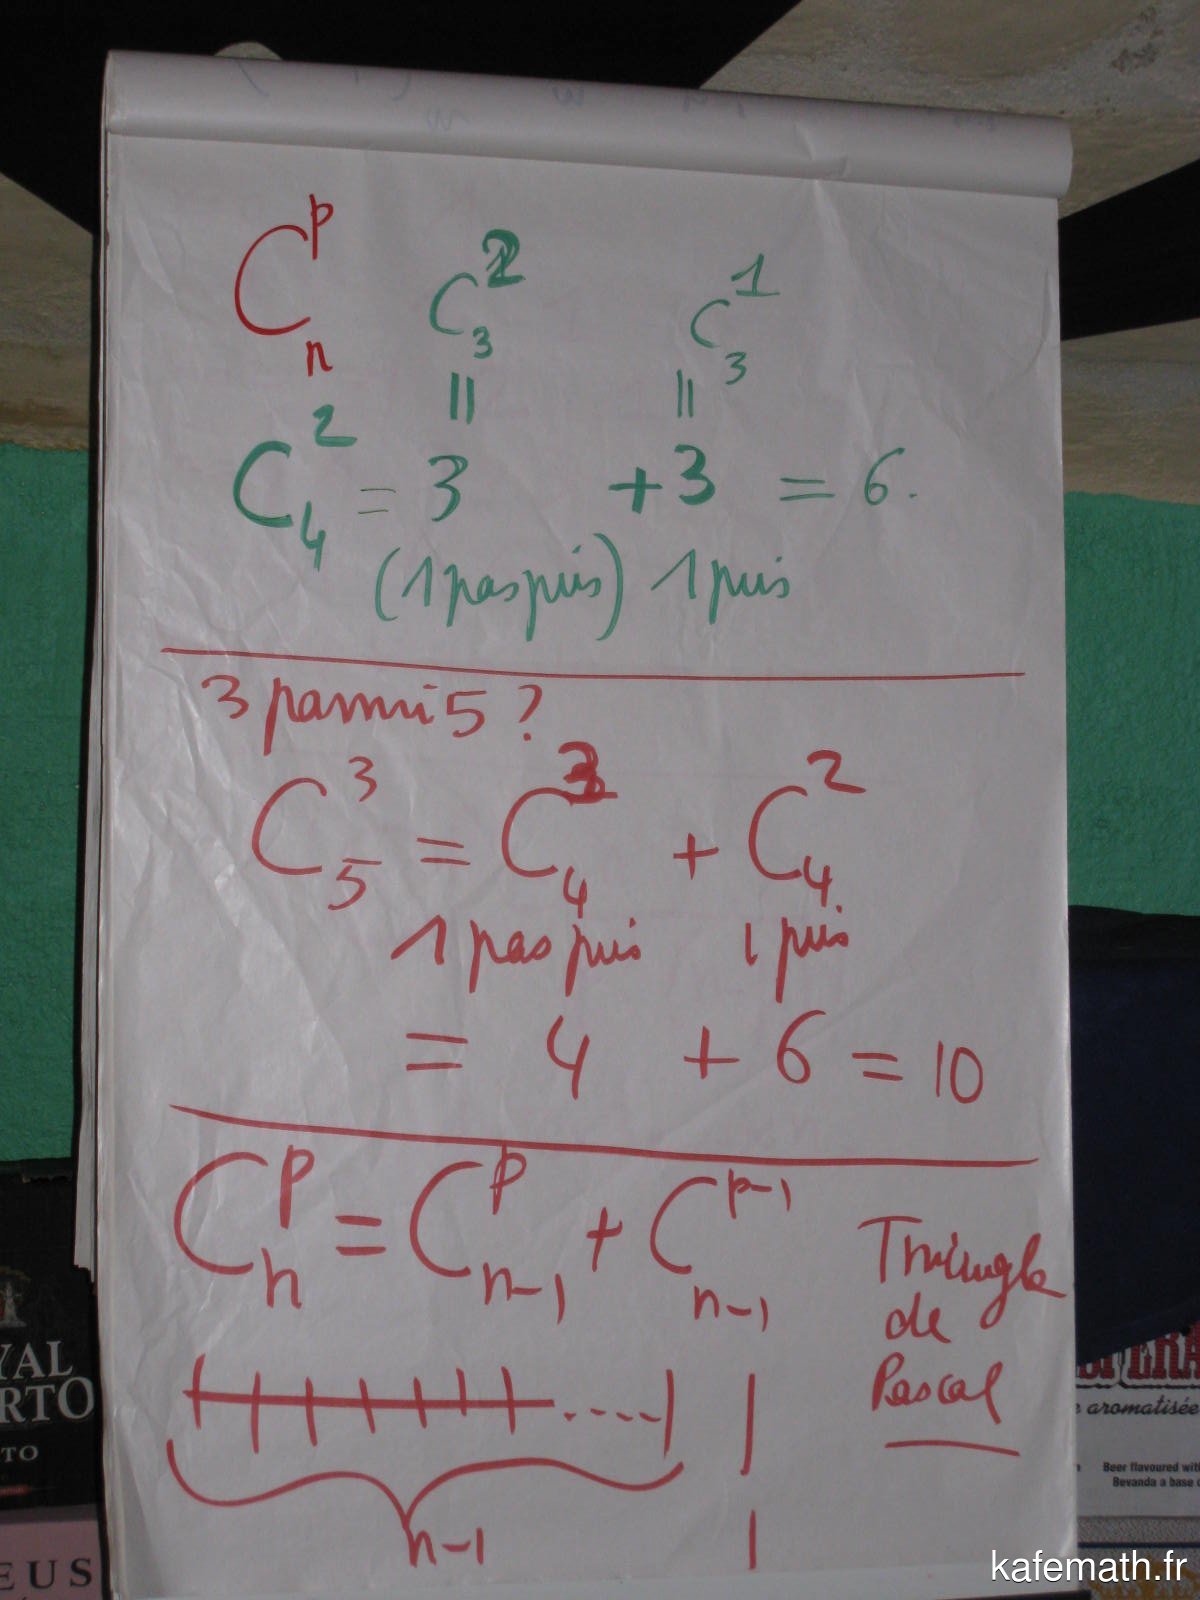 C_n^p C_3^2 C_3^1
= =
C_4^2 = 3 + 3 = 6.
(1 pas pris) 1 pris
3 parmi 5 ?
C_5^3 = C_4^3 + C_4^2
1 pas pris 1 pris
= 4 + 6 = 10
C_n^p = C_{n-1}^p + C_{n-1}^{p-1}
Triangle
de
Pascal
n-1 1
YAL
RTO
TO
EUS
aromatisée
Beer flavoured
Bevanda a base
kafemath.fr